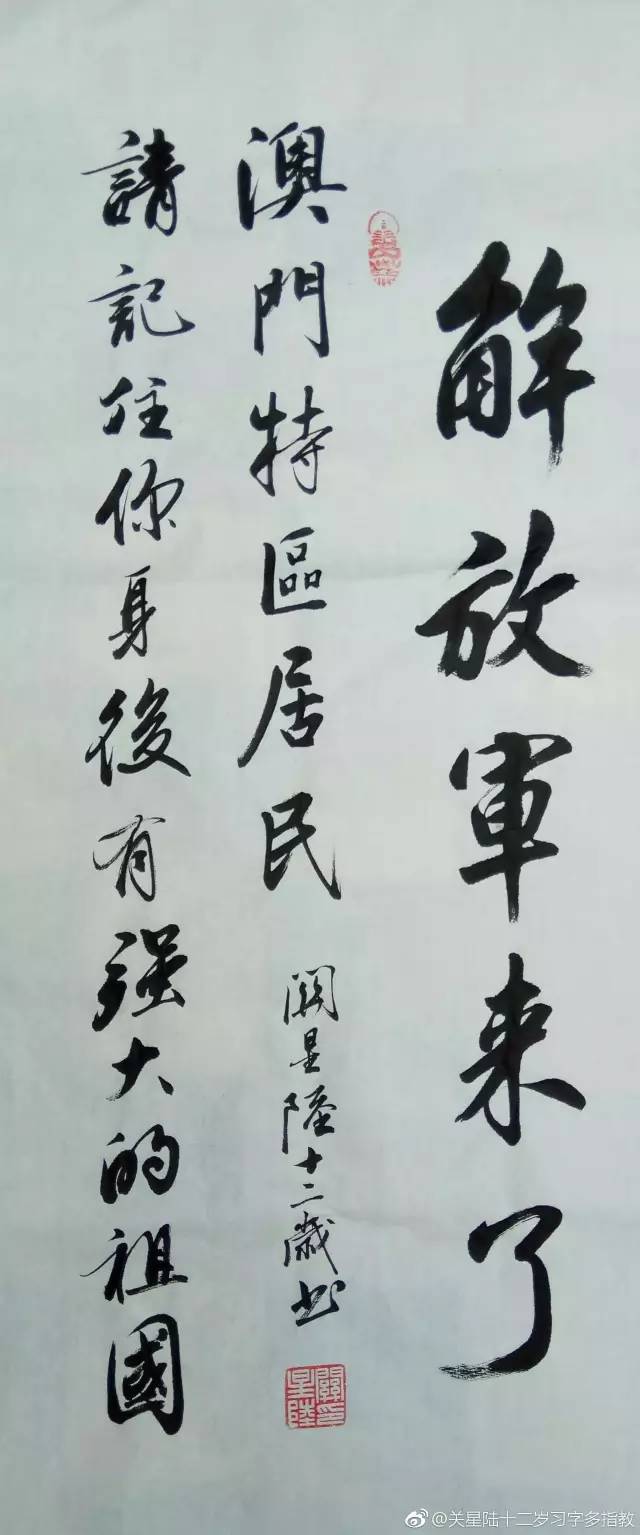 解放軍来了
澳門特區居民
關星陸十二歲書
請記住你身後有强大的祖國
關星陸印
@关星陆十二岁习字多指教